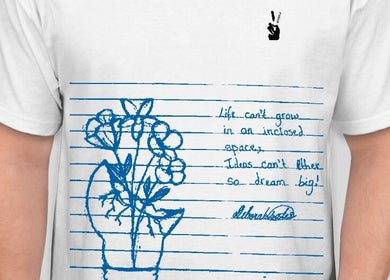 Life can't grow
in an inclosed
space,
Ideas can't either
so dream big!